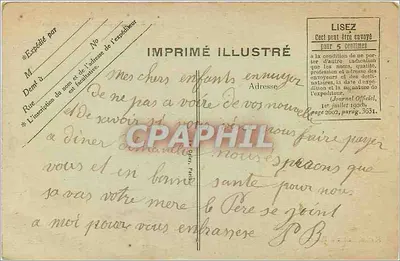 * Expédié par
M
Demt à
Rue
No
* L'inscription du nom et de l'adresse de l'expéditeur
est facultative.
IMPRIMÉ ILLUSTRÉ
Adresse
LISEZ
Ceci peut être envoyé
pour 5 centimes
à la condition de ne por-
ter d'autre indication
que les nom, qualité,
profession et adresse
des envoyeurs et des des-
tinataires, avec date
d'expédition et la signature de
l'expéditeur.
(Journal Officiel,
1er juillet 1906,
page 2003, parag. 3631.
mes chers enfants ennuyez
de ne pas a voire de vos nouvelle
de savoir si vous nous faire payer
a diner dimanche nous espraons que
vous et en bonne sante pour nous
sa vas votre mere le Père se joint
a moi pour vous enbrassese P B
CPAPHIL